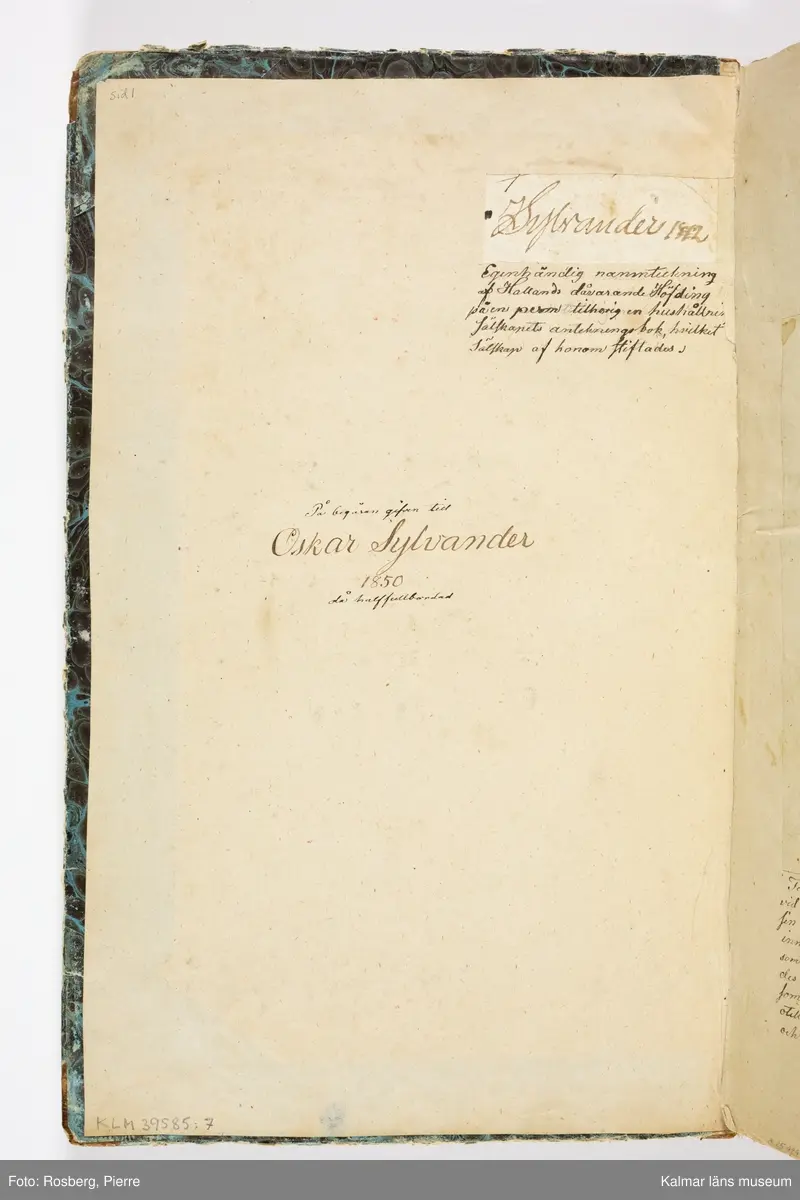 sid 1
Sylvander 1812
Egenhändig namnteckning
af Hallands dåvarande Höfding
på en perm tillhörig en hushållni:
Sälskapets anteknings bok, hvilket
Sälskap af honom stiftades.
På begäran gifven till
Oskar Sylvander
1850
då half fullbordad
vid
inn
som
des
och
KLM 39585:7
Foto: Rosberg, Pierre
Kalmar läns museum